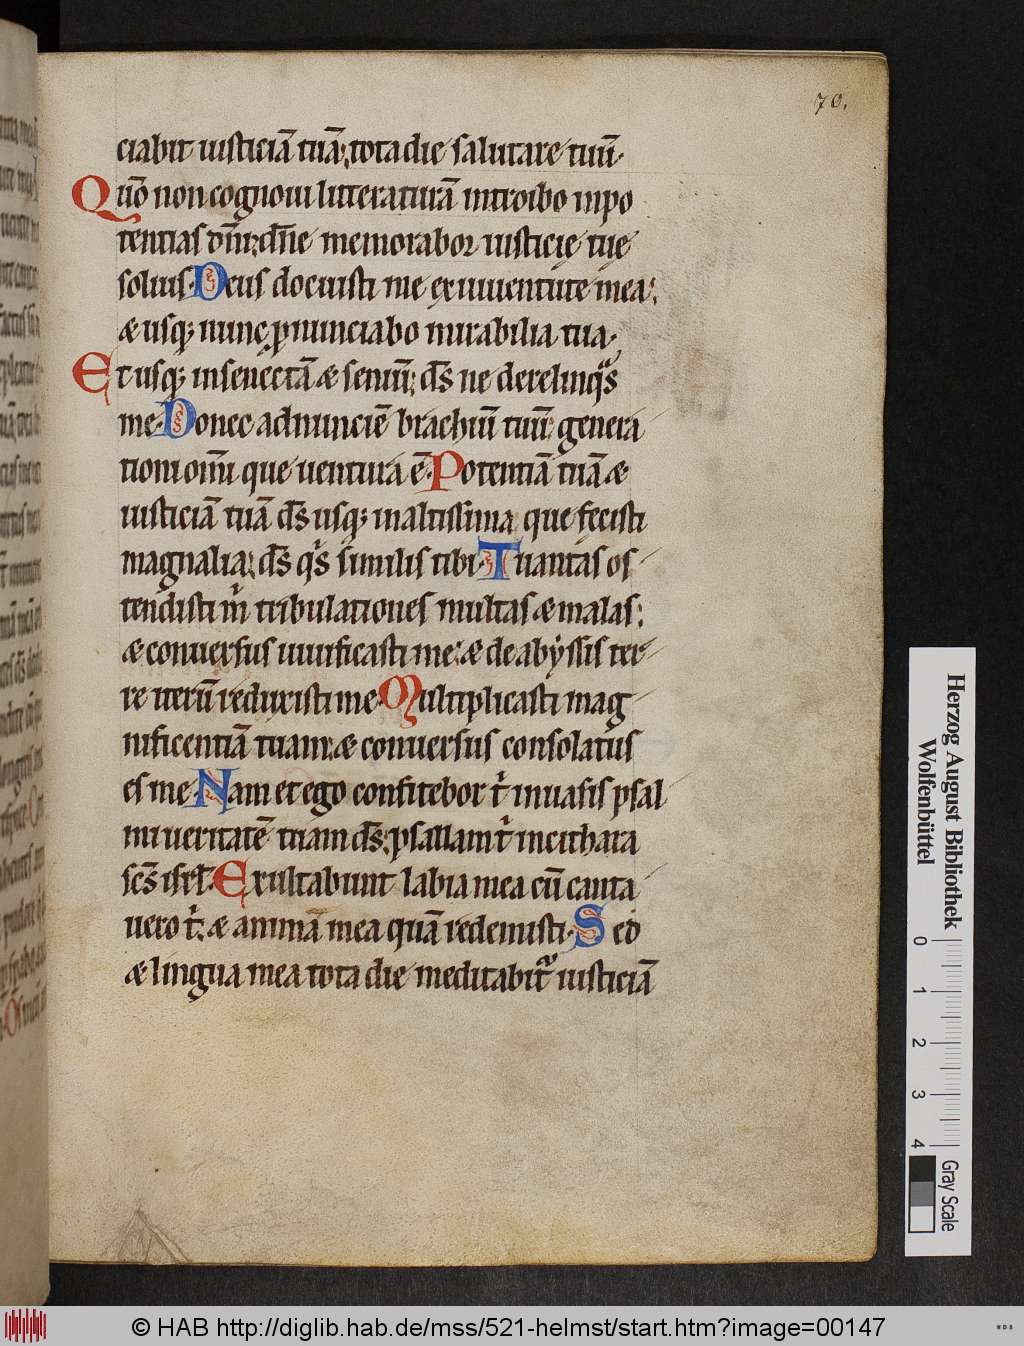 70.
ciabit iusticiā tuā; tota die salutare tuū·
Qūo non cognoui litteraturā introibo inpo
tentias dn̄i; dn̄e memorabor iusticię tuę
solius· Deus docuisti me ex iuuentute mea;
& usq; nunc, ꝓnunciabo mirabilia tua·
Et usq; in senectā & seniū; ds̄ ne derelinq̄s
me· Donec adnunciē brachiū tuū generā
tioni om̄i que uentura ē· Potentiā tuā &
iusticiā tuā ds̄ usq; inaltissima que fecisti
magnalia; ds̄ q̇s similis tibi· Quantas os
tendisti ṁ tribulationes multas & malas;
& conuersus uiuificasti me: & de abyssis ter
re iterū reduxisti me· Multiplicasti mag
nificentiā tuam: & conuersus consolatus
es me· Nam et ego confitebor t̄ inuasis psal
mi ueritatē tuam ds̄; psallam t̄ incithara
scs̄ isrl̄· Exultabunt labia mea cū canta
uero t̄: & animā mea quā redemisti· Sed
& lingua mea tota die meditabit᷑ iusticiā
Herzog August Bibliothek
Wolfenbüttel
0 1 2 3 4
Gray Scale
© HAB http://diglib.hab.de/mss/521-helmst/start.htm?image=00147